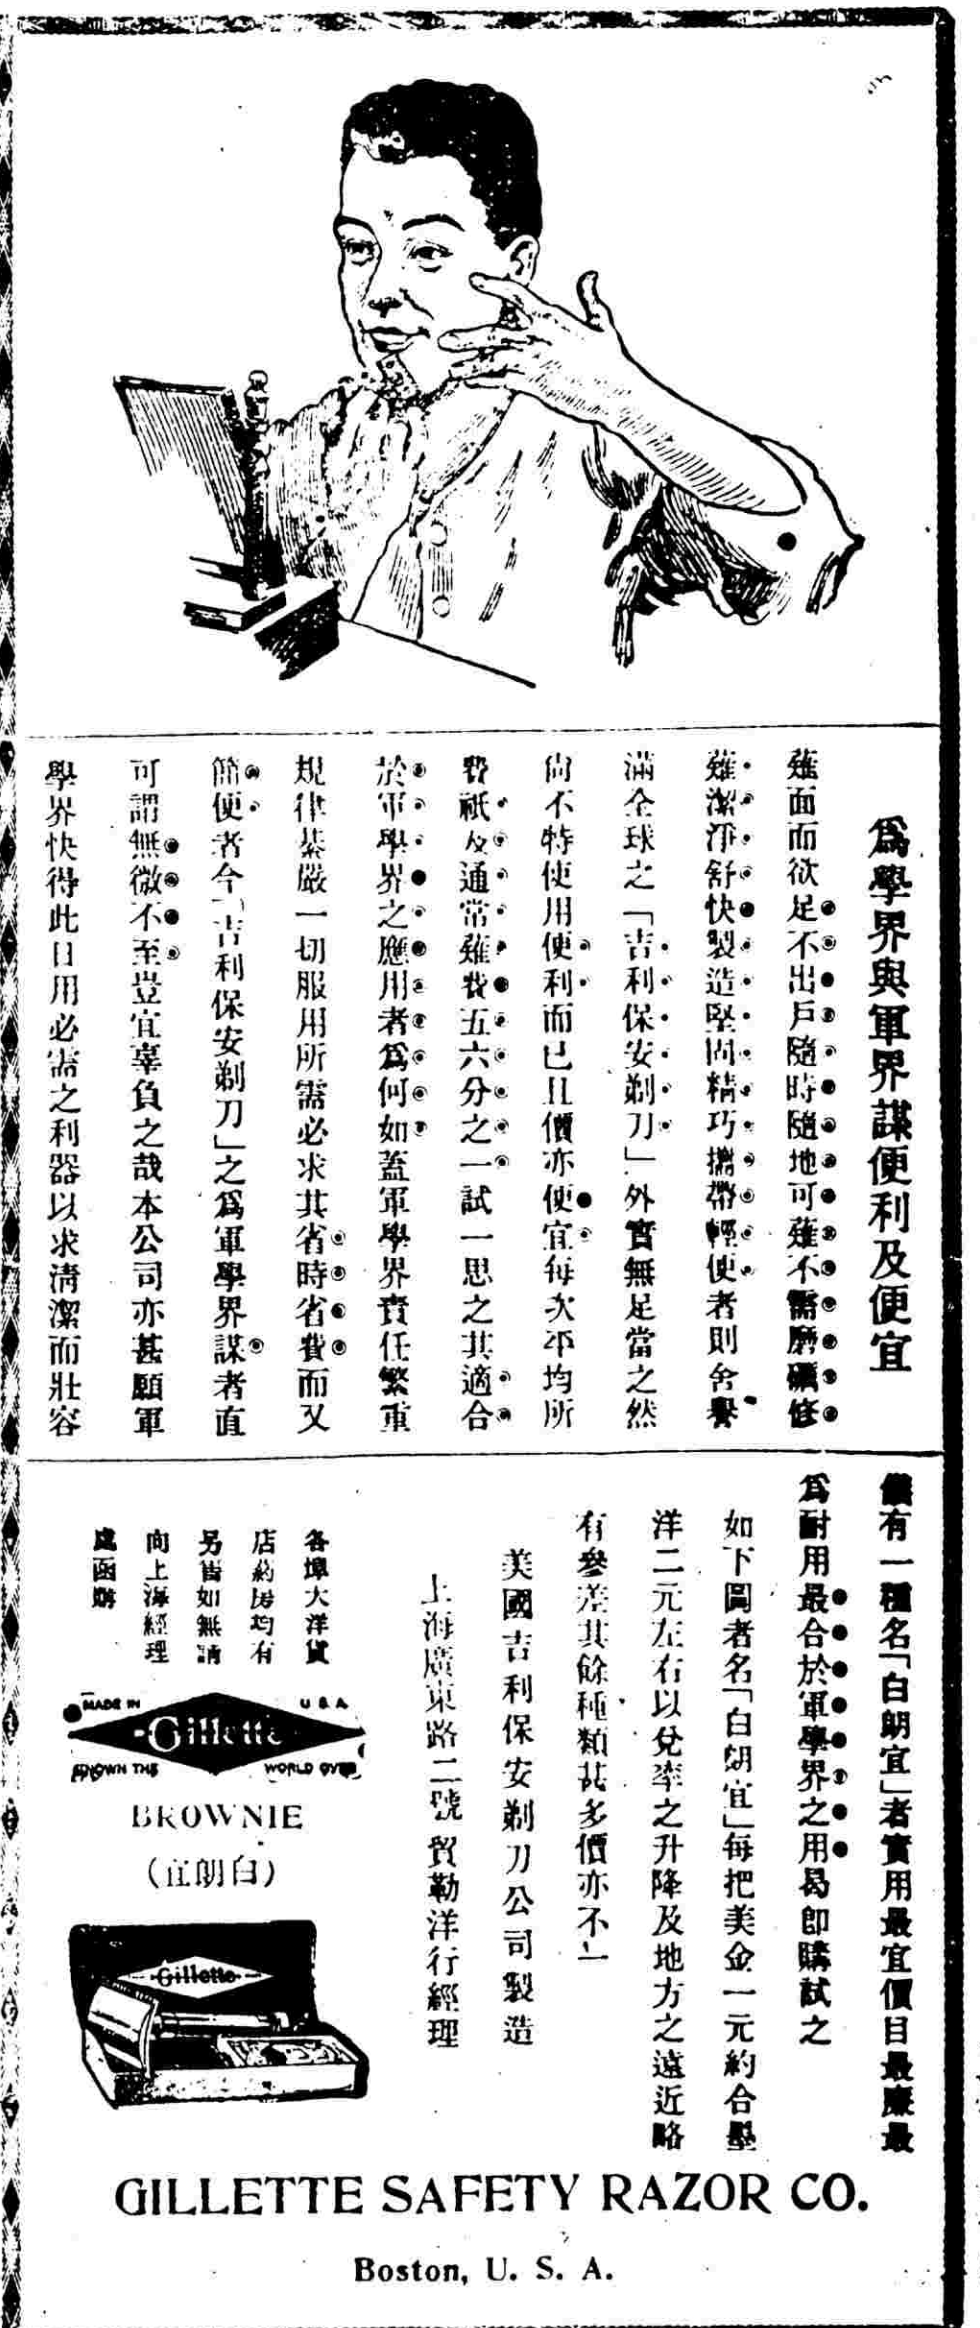 爲學界與軍界謀便利及便宜
薙面而欲足不出戶隨時隨地可薙不需磨礪修
薙潔淨舒快製造堅固精巧攜帶輕便者則舍譽
滿全球之「吉利保安剃刀」外實無足當之然
尙不特使用便利而已且價亦便宜每次平均所
費祇及通常薙費五六分之一試一思之其適合
於軍學界之應用者爲何如蓋軍學界責任繁重
規律綦嚴一切服用所需必求其省時省費而又
簡便者今「吉利保安剃刀」之爲軍學界謀者直
可謂無微不至豈宜辜負之哉本公司亦甚願軍
學界快得此日用必需之利器以求清潔而壯容
儀有一種名「白朗宜」者實用最宜價目最廉最
爲耐用最合於軍學界之用曷卽購試之
如下圖者名「白朗宜」每把美金一元約合墨
洋二元左右以兌率之升降及地方之遠近略
有參差其餘種類甚多價亦不一
美國吉利保安剃刀公司製造
上海廣東路二號貿勒洋行經理
各埠大洋貨
店藥房均有
另售如無請
向上海經理
處函購
MADE IN U.S.A.
Gillette
KNOWN THE WORLD OVER
BROWNIE
(宜朗白)
Gillette
GILLETTE SAFETY RAZOR CO.
Boston, U. S. A.